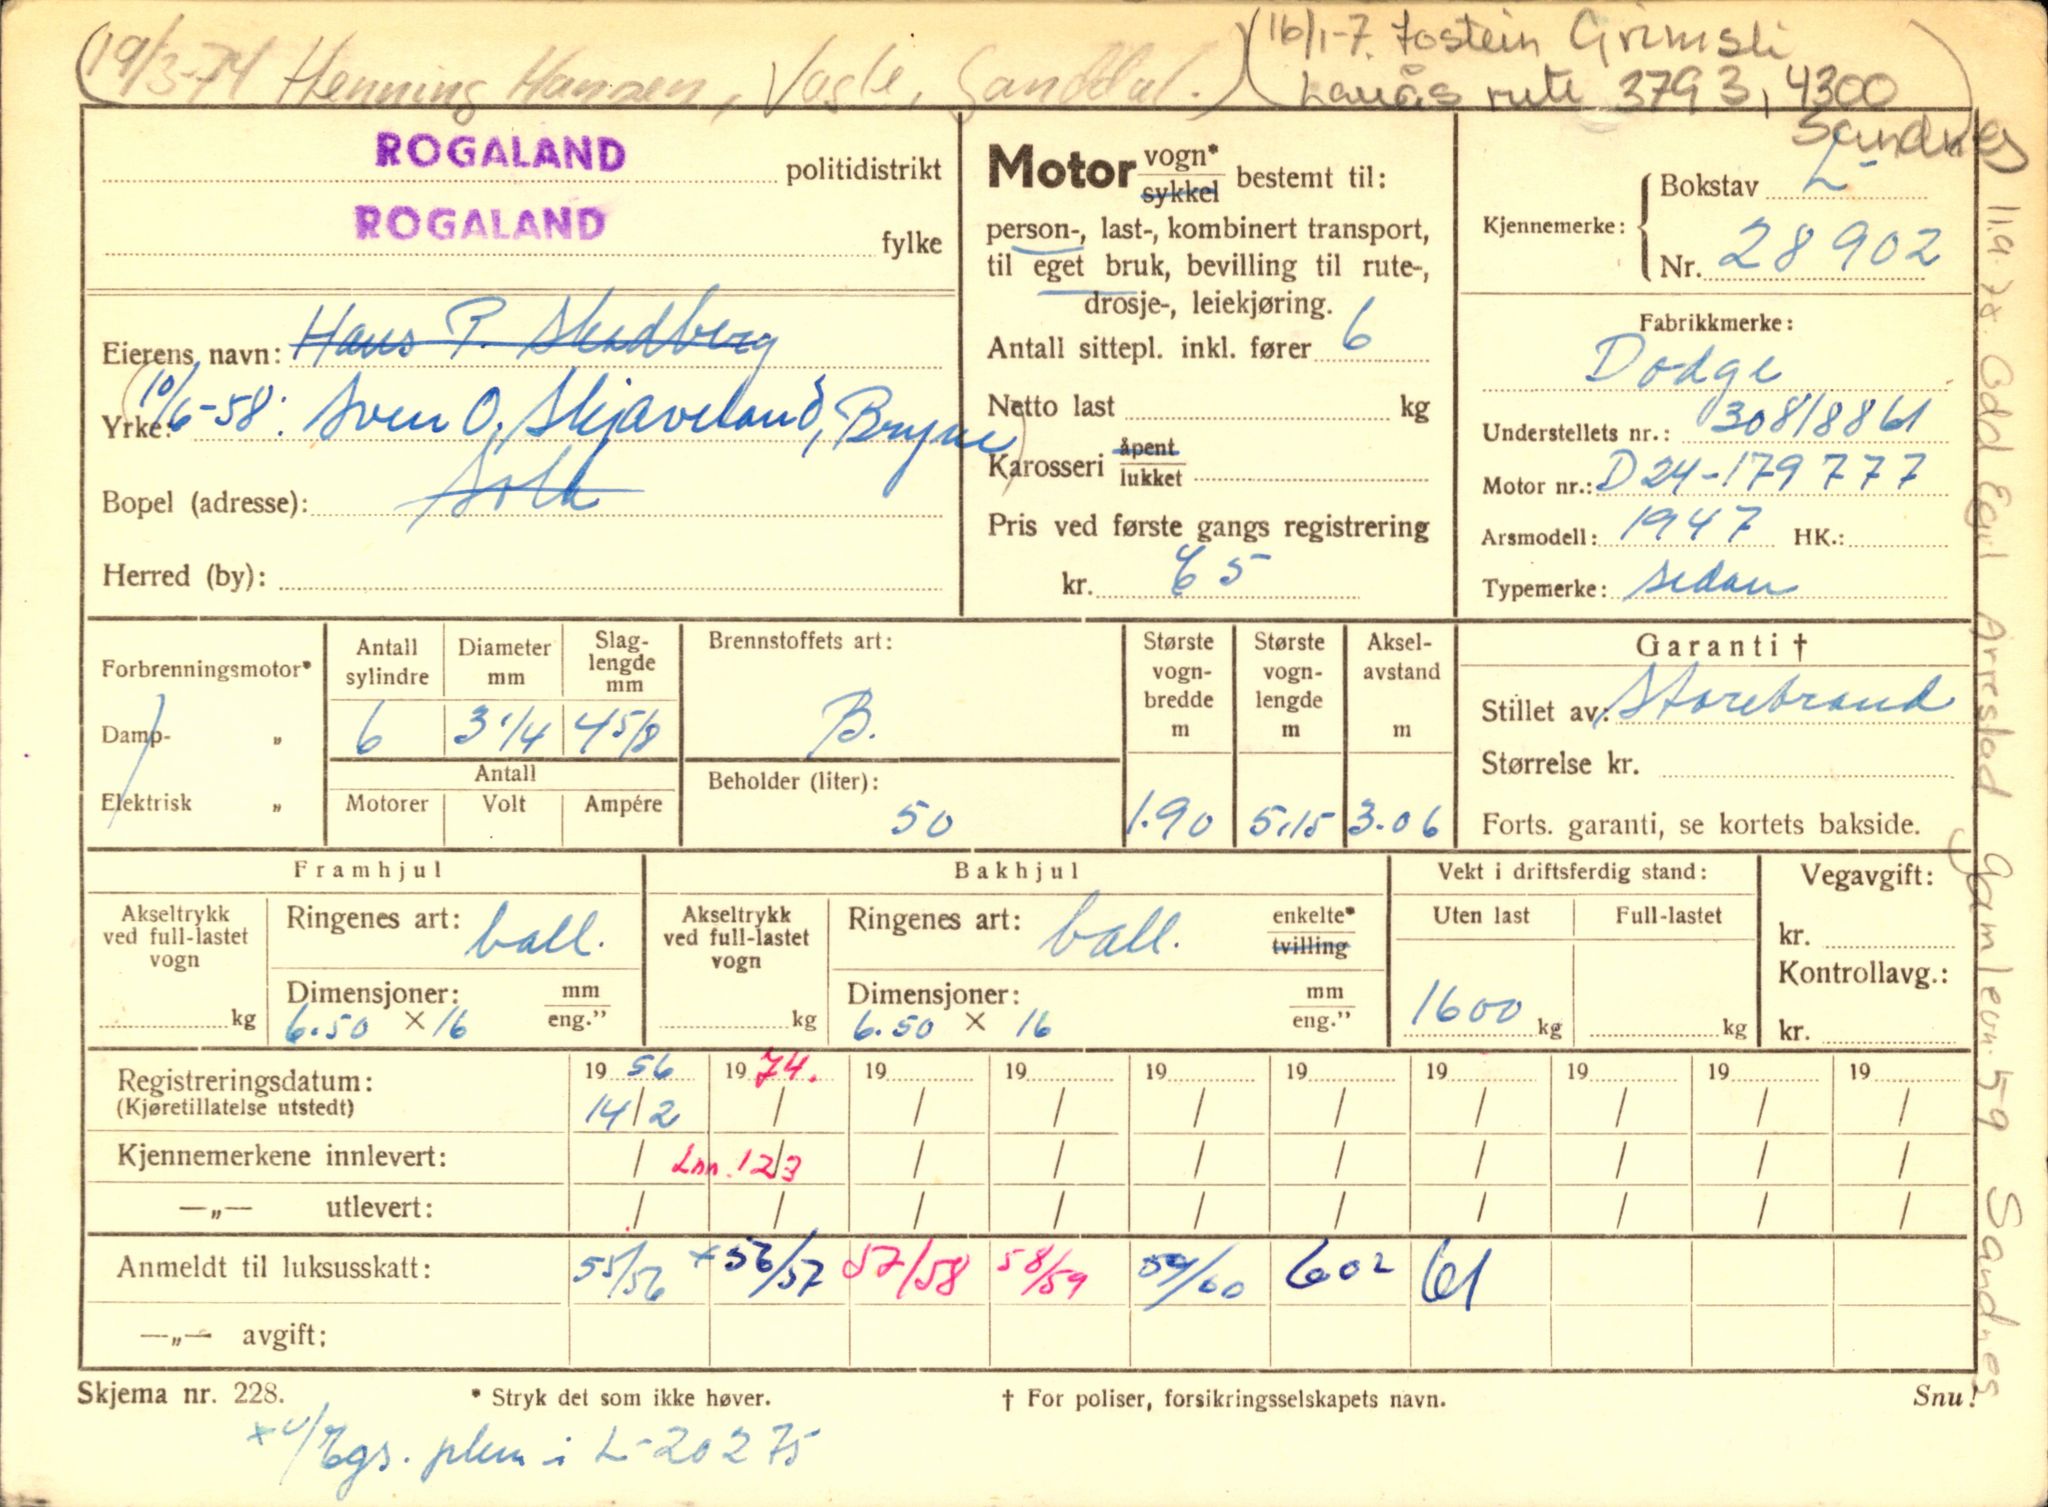 (19/3-74 Henning Hansen, Vagle, Sanddal.)
(16/1-7. Jostein Grimsli
rute 3793, 4300
Sandnes
ROGALAND politidistrikt
ROGALAND fylke
Eierens navn: Hans P. Skadberg
10/6-58: Sven O. Skjæveland, Bryne
Yrke:
Bopel (adresse): Sola
Herred (by):
Motor vogn*/sykkel bestemt til:
person-, last-, kombinert transport,
til eget bruk, bevilling til rute-,
drosje-, leiekjøring.
Antall sittepl. inkl. fører 6
Netto last kg
Karosseri åpent/lukket
Pris ved første gangs registrering
kr. 65
Kjennemerke: Bokstav L-
Nr. 28902
Fabrikkmerke:
Dodge
Understellets nr.: 30818861
Motor nr.: D24-179777
Arsmodell: 1947 HK.:
Typemerke: sedan
Forbrenningsmotor*
Damp- „
Elektrisk „
Antall sylindre 6
Diameter mm 3 1/4
Slag-lengde mm 4 5/8
Antall
Motorer Volt Ampére
Brennstoffets art:
B.
Beholder (liter):
50
Største vogn-bredde m 1.90
Største vogn-lengde m 5.15
Aksel-avstand m 3.06
Garanti †
Stillet av: Storebrand
Størrelse kr.
Forts. garanti, se kortets bakside.
Framhjul
Akseltrykk ved full-lastet vogn kg
Ringenes art: ball.
Dimensjoner: mm/eng.”
6.50 × 16
Bakhjul
Akseltrykk ved full-lastet vogn kg
Ringenes art: ball. enkelte*/tvilling
Dimensjoner: mm/eng.”
6.50 × 16
Vekt i driftsferdig stand:
Uten last Full-lastet
1600 kg kg
Vegavgift:
kr.
Kontrollavg.:
kr.
Registreringsdatum: 19 56 19 74. 19 19 19 19 19 19 19 19
(Kjøretillatelse utstedt) 14/2 / / / / / / / / /
Kjennemerkene innlevert: / Inn. 12/3 / / / / / / / /
—„— utlevert: / / / / / / / / / /
Anmeldt til luksusskatt: 55/56 ×56/57 57/58 58/59 59/60 602 61
—„— avgift:
Skjema nr. 228. * Stryk det som ikke høver. † For poliser, forsikringsselskapets navn. Snu!
L-20275
11.9.78. Odd Egil Årrestad Gamlevn. 59 Sandnes